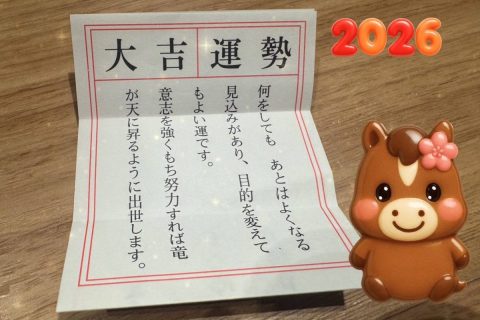 大吉運勢
何をしても あとはよくなる
見込みがあり、目的を変えて
もよい運です。
意志を強くもち努力すれば竜
が天に昇るように出世します。
2026